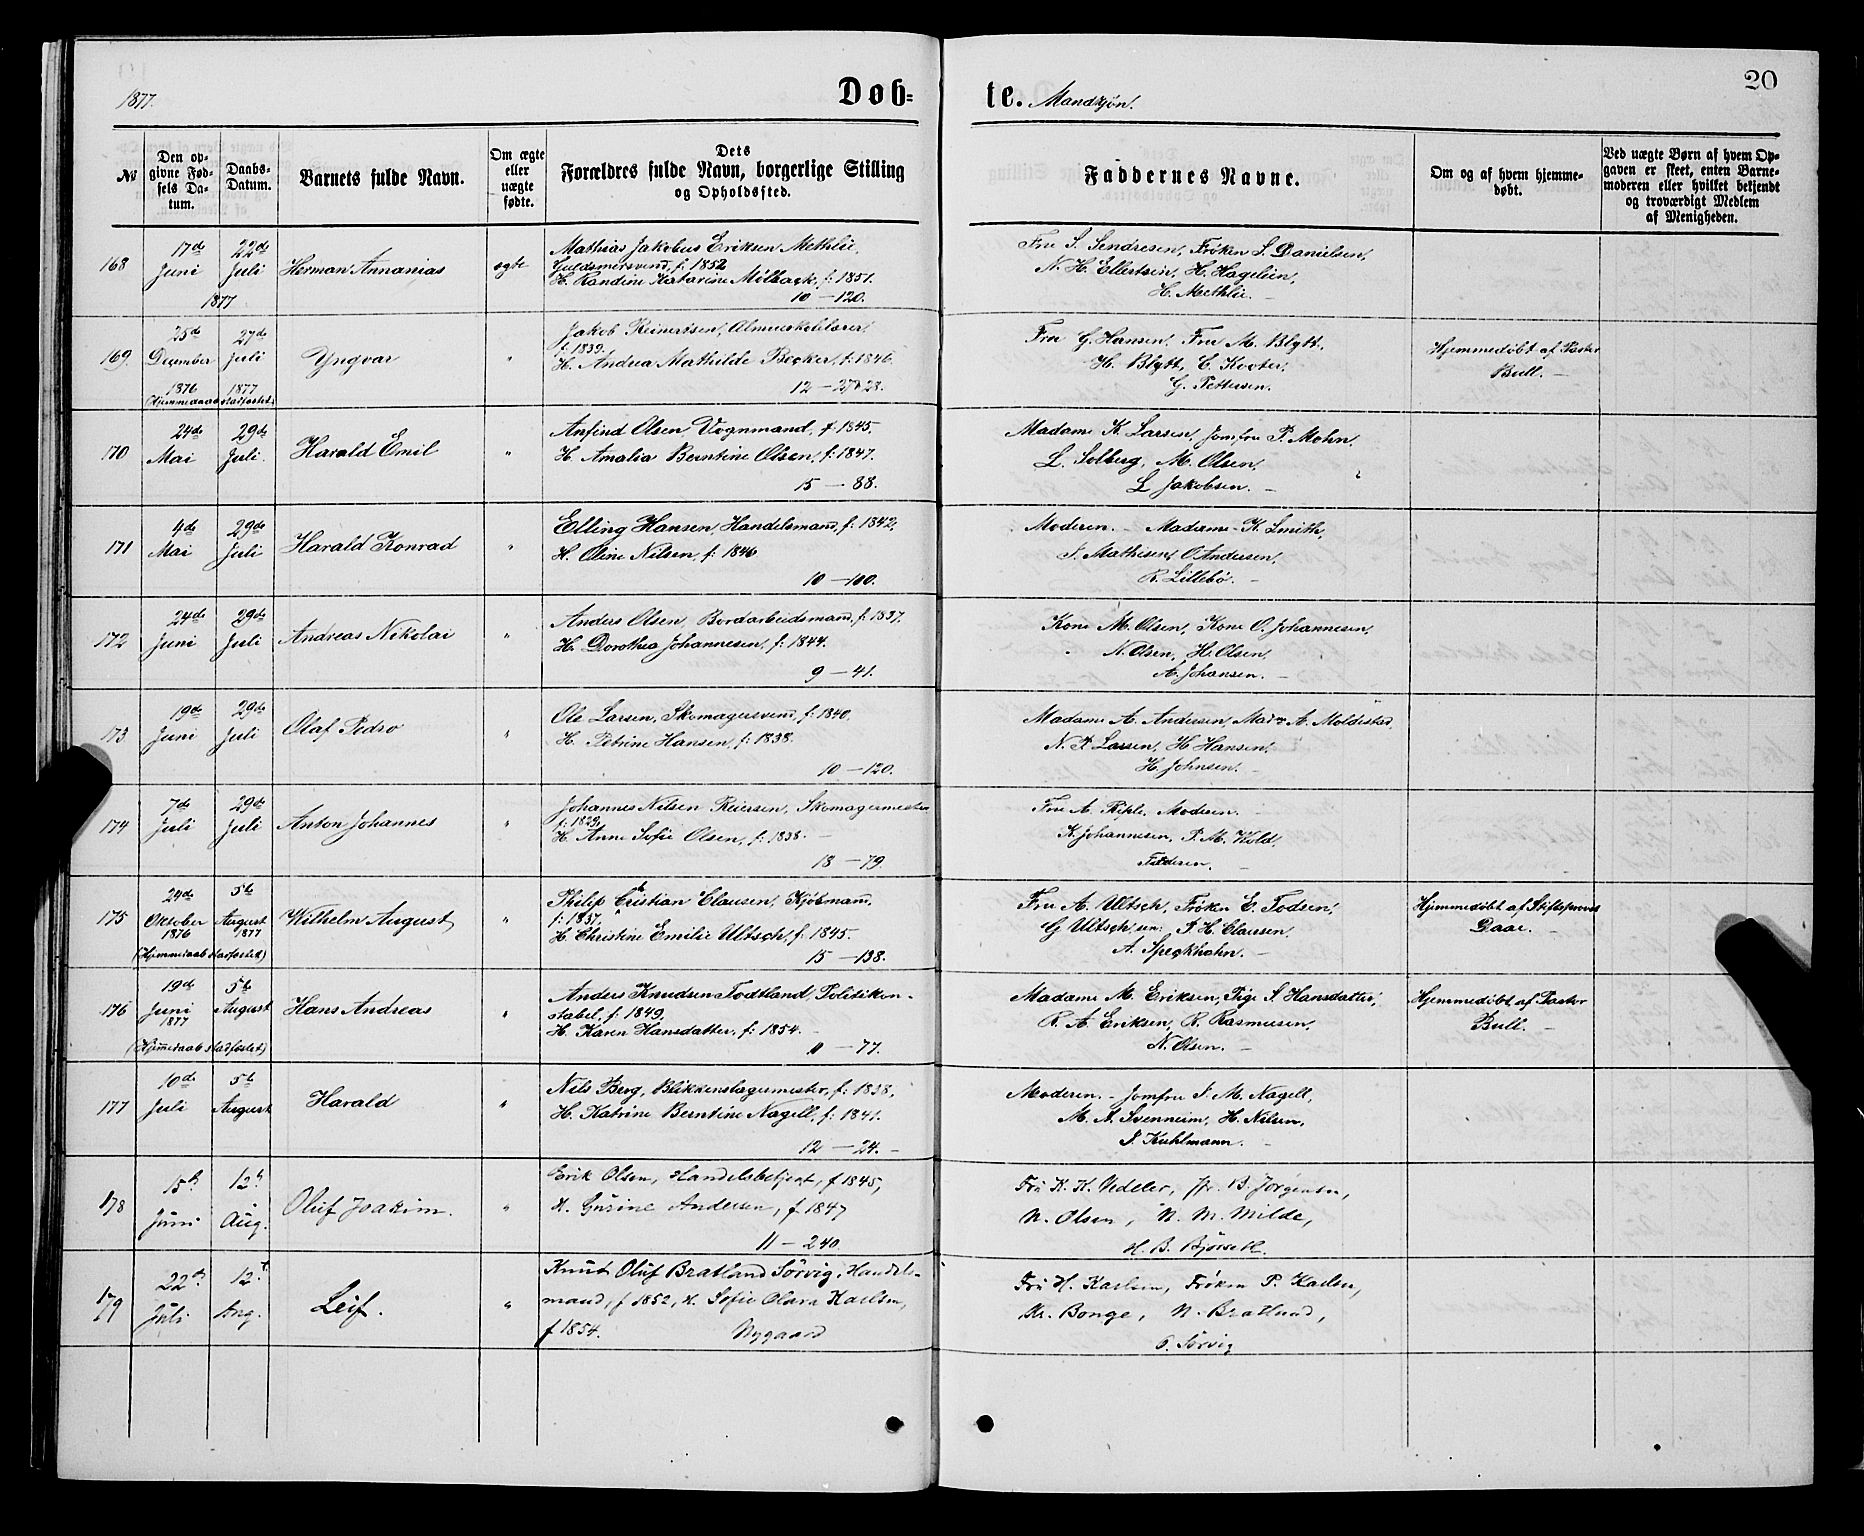 1877.
Døb=
te. Mandkjøn.
20
No
Den op-
givne Fød-
sels Da-
tum.
Daabs-
Datum.
Barnets fulde Navn.
Om ægte
eller
uægte
fødte.
Dets
Forældres fulde Navn, borgerlige Stilling
og Opholdssted.
Faddernes Navne.
Om og af hvem hjemme-
døbt.
Ved uægte Børn af hvem Op-
gaven er skeet, enten Barne-
moderen eller hvilket bekjendt
og troværdigt Medlem
af Menigheden.
168
17de
Juni
22de
Juli
1877
Herman Annanias
ægte
Mathias Jakobus Eriksen Methlie,
Guldsmersvend, f: 1852
H. Randine Katarine Milback, f: 1851.
10 - 120.
Fru S. Sendresen, Frøken S. Danielsen,
N. H. Ellertsen, H. Hagelien,
H. Methlie. -
169.
25de
December
1876
27de
Juli
1877
(Hjemmedaab stadfæstet)
Yngvar
"
Jakob Reinertsen, Almueskolelærer,
f: 1839.
H. Andrea Mathilde Becker, f: 1846.
12 - 27&28.
Fru G. Hansen, Fru M. Blytt.
H. Blytt, C. Kooter,
G. Pettersen.
Hjemmedøbt af Pastor
Bull. -
170
24de
Mai
29de
Juli.
Harald Emil
"
Anfind Olsen, Vognmand, f: 1845.
H. Amalia Berntine Olsen, f: 1847.
15 - 88.
Madame K. Larsen, Jomfru P. Mohn,
L. Solberg, M. Olsen,
L. Jakobsen. -
171
4de
Mai
29de
Juli
Harald Konrad
"
Elling Hansen, Handelsmand, f: 1842,
H. Oline Nilsen, f: 1846
10 - 100.
Moderen. - Madame K. Smith,
S. Mathisen, O. Andersen,
R. Lillebø. -
172
24de
Juni
29de
Juli
Andreas Nikolai
"
Anders Olsen, Bordarbeidsmand, f: 1837.
H. Dorothea Johannesen, f: 1844.
9 - 41.
Kone M. Olsen, Kone O. Johannesen,
N. Olsen, H. Olsen,
A. Johansen. -
173
19de
Juni
29de
Juli
Olaf Pedro
"
Ole Larsen, Skomagersvend, f: 1840.
H. Petrine Hansen, f: 1838.
10 - 120.
Madame A. Andersen, Mad. A. Moldestad,
N. P. Larsen, H. Hansen,
H. Johnsen. -
174
7de
Juli
29de
Juli
Anton Johannes
"
Johannes Nilsen Reiersen, Skomagermester
f: 1829,
H. Anne Sofie Olsen, f: 1838. -
18 - 79.
Fru A. Pihl. Moderen. -
K. Johannesen, P. M. Kold,
Faderen. -
175
24de
Oktober
1876
5te
August
1877
(Hjemmedaab stadfæstet)
Wilhelm August
"
Philip Christian Clausen, Kjøbmand,
f: 1837,
H. Christine Emilie Ultsch, f: 1845.
15 - 138.
Fru A. Ultsch, Frøken E. Todsen,
G. Ultsch sen: P. H. Clausen,
A. Speckhahn. -
Hjemmedøbt af Stiftsprovst
Daae. -
176
19de
Juni
1877
5te
August
(Hjemmedaab stadfæstet)
Hans Andreas
"
Anders Knudsen Todtland, Politikon-
stabel, f: 1849,
H. Karen Hansdatter, f: 1854. -
11 - 77.
Madame M. Eriksen, Pige S. Hansdatter,
R. A. Eriksen, R. Rasmusen,
N. Olsen. -
Hjemmedøbt af Pastor
Bull. -
177
10de
Juli
5te
August
Harald
"
Nils Berg, Blikkenslagermester, f: 1838,
H. Katrine Berntine Nagell, f: 1841.
12 - 24. -
Moderen. - Jomfru S. M. Nagell,
M. A. Svenneim, H. Nilsen,
J. Kuhlmann. -
178
15de
Juni
12te
Aug.
Oluf Joakim.
"
Erik Olsen, Handelsbetjent, f 1845,
H. Gurine Andersen, f 1847
11 - 240.
Fru K. H. Vedeler, Jfr. B. Jørgensen,
N. Olsen, N. M. Milde,
H. B. Bjørseth.
179
22de
Juli
12te
Aug.
Leif.
"
Knut Oluf Bratland Sörvig, Handels-
mand, f 1852, H. Sofie Olava Karlsen,
f 1854. Nygaard
Fru H. Karlsen, Frøken P. Karlsen,
Kr. Bonge, N. Bratland,
O. Sörvig